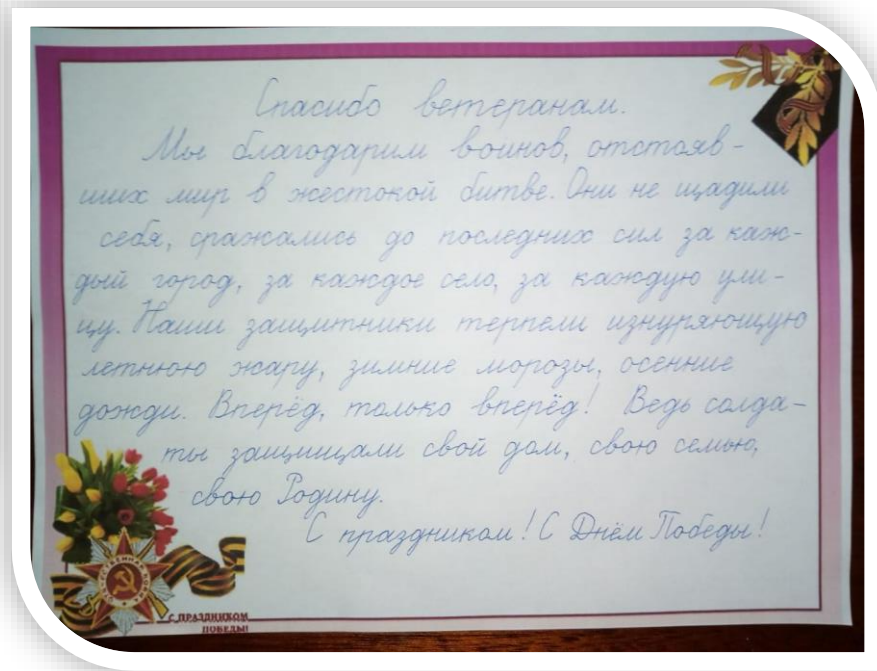 Спасибо ветеранам.
Мы благодарим воинов, отстояв-
ших мир в жестокой битве. Они не щадили
себя, сражались до последних сил за каж-
дый город, за каждое село, за каждую ули-
цу. Наши защитники терпели изнуряющую
летнюю жару, зимние морозы, осенние
дожди. Вперёд, только вперёд! Ведь солда-
ты защищали свой дом, свою семью,
свою Родину.
С праздником! С Днём Победы!
ОТЕЧЕСТВЕННАЯ ВОЙНА
С ПРАЗДНИКОМ
ПОБЕДЫ!